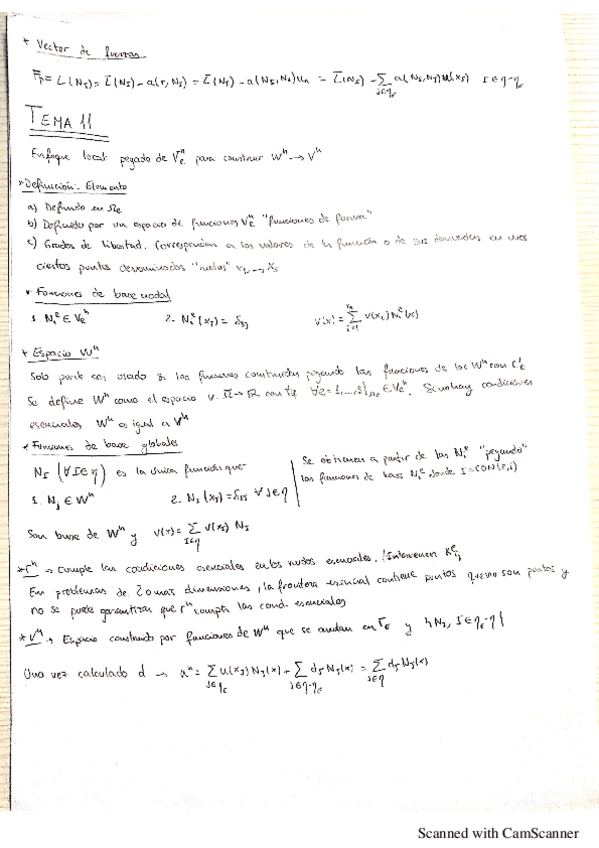 * Vector de fuerzas
F_I = L(N_I) = L̄(N_I) - a(r, N_I) = L̄(N_I) - a(N_I, N_J)u_n = L̄(N_I) - Σ_{J∈η_e} a(N_I, N_J) u(x_J) I ∈ η-η_e
TEMA 11
Enfoque local: pegado de V_e^h para construir W^h → V^h
* Definición: Elemento
a) Definido en Ω_e
b) Definido por un espacio de funciones V_e^h "funciones de forma"
c) Grados de libertad. Corresponden a los valores de la función o de sus derivadas en unos
ciertos puntos denominados "nudos"
* Funciones de base nodal
1. N_i^e ∈ V_e^h 2. N_i^e(x_j) = δ_ij v(x) = Σ v(x_i) N_i^e(x)
* Espacio W^h
Solo puede ser usado si las funciones construidas pegando las funciones de los W^h son
Se define W^h como el espacio v: Ω̄ → R con tq ∀e = 1,..., ∈ V_e^h. Si no hay condiciones
esenciales W^h es igual a V^h
* Funciones de base globales
N_I (∀I∈η) es la única función que
1. N_I ∈ W^h 2. N_I(x_J) = δ_IJ ∀J∈η
Se obtienen a partir de las N_i^e "pegando"
las funciones de base N_i^e donde I = CON(e,i)
Son base de W^h y v(x) = Σ_{I∈η} v(x_I) N_I
* r^h → Cumple las condiciones esenciales en los nudos esenciales. Intervienen
En problemas de 2 o más dimensiones, la frontera esencial contiene puntos que no son y
no se puede garantizar que r^h cumpla las cond. esenciales
* V^h → Espacio construido por funciones de W^h que se anulan en Γ_e y
Una vez calculado d → u^h = Σ_{J∈η_e} u(x_J) N_J(x) + Σ_{J∈η-η_e} d_J N_J(x) = Σ_{J∈η} d_J N_J(x)
Scanned with CamScanner